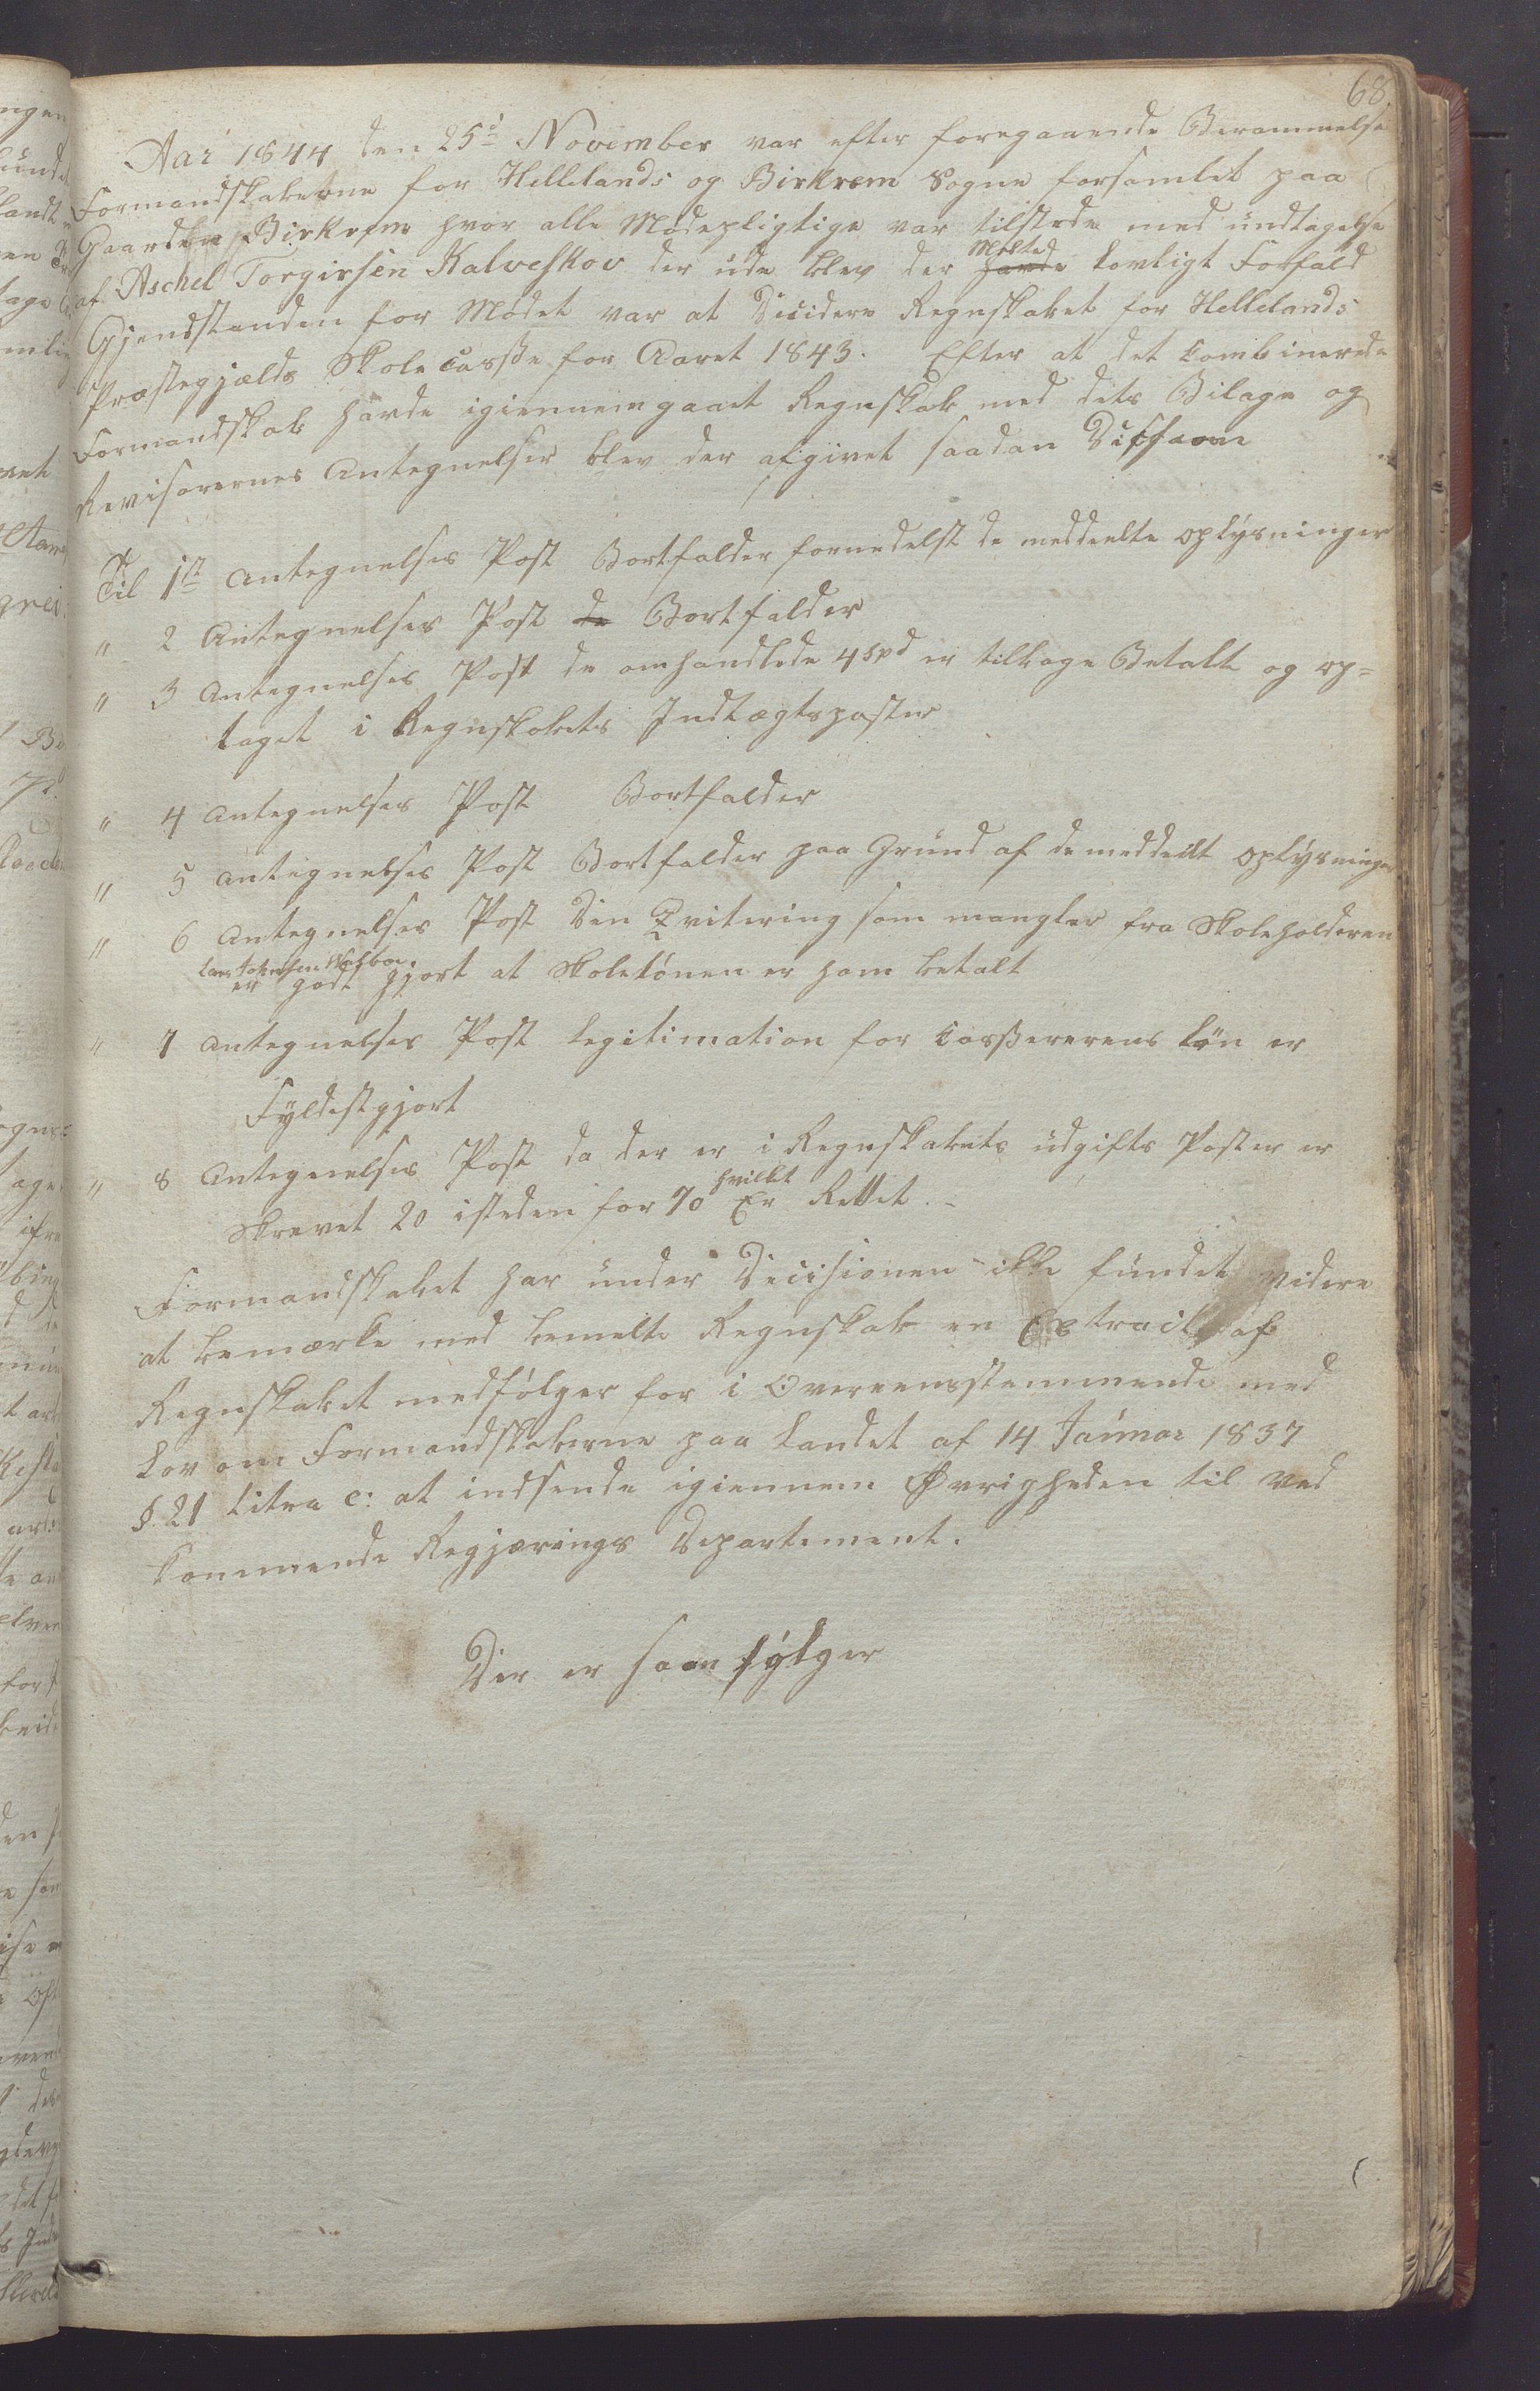 68.
Aar 1844 den 25de November var efter foregaaende Berammelse
Formandskaberne for Hellelands og Birkrem Sogne forsamlet paa
Gaarden Birkrem hvor alle Mødepligtige var tilstede med undtagelse
af Aschel Torgirsen Kalveskov der ude blev der havde Meldte lovligt Forfald
Gjendstanden for Mødet var at Decidere Regnskabet for Hellelands
Præstegjælds Skolecasse for Aaret 1843. Efter at det Combinerede
Formandskab havde igiennemgaaet Regnskab med dets Bilage og
Revisorernes Antegnelser blev der afgivet saadan
Til 1ste Antegnelses Post Bortfalder formedelst de meddeelte oplysninger
" 2 Antegnelses Post de Bortfalder
" 3 Antegnelses Post de omhandlede 4 Spd er tilbage Betalt og op=
taget i Regnskabets Indtægtsposter
" 4 Antegnelses Post Bortfalder
" 5 Antegnelses Post Bortfalder paa Grund af de meddeelt oplysninger
" 6 Antegnelses Post Den Qvitering som mangler fra Skoleholderen
er godt gjort at Skolelønen er ham betalt
" 7 Antegnelses Post legitimation for Cassererens løn er
Fyldestgjort
" 8 Antegnelses Post da der er i Regnskabets udgifts Poster er
Skrevet 20 isteden for 70 hvilket Er Rettet. -
Formandskabet har under Decisionen ikke fundet videre
at bemærke med bemelte Regnskab en Extract af
Regnskabet medfølger for i Overeensstemmende med
Lov om Formandskaberne paa Landet af 14 Januar 1837
§. 21 Litra c: at indsende igiennem Øvrigheden til ved
kommende Regjærings Departement.
Der er som følger